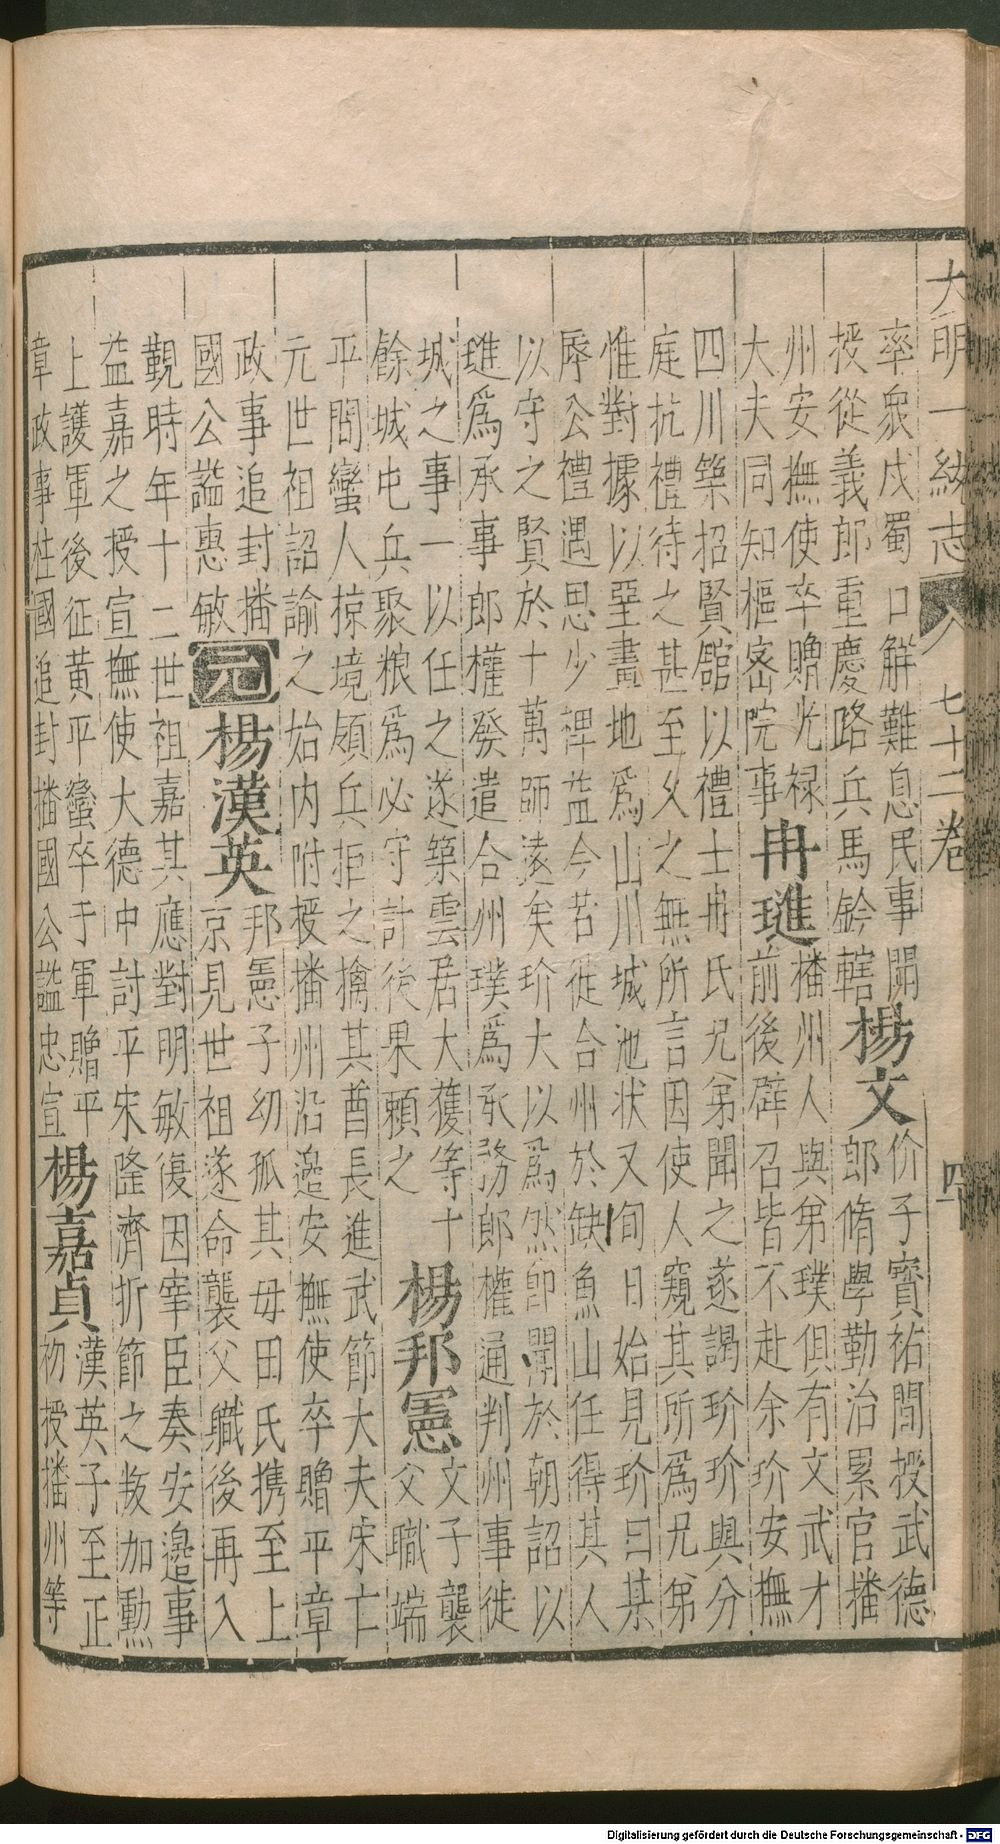 大明一統志 八 七十二卷 四十
率衆戍蜀口解難息民事聞
授從義郎重慶路兵馬鈐轄
楊文
价子寶祐間授武德
郎脩學勤治累官播
州安撫使卒贈光禄
大夫同知樞密院事
冉璡
播州人與弟璞俱有文武才
前後辟召皆不赴余玠安撫
四川築招賢館以禮士冉氏兄弟聞之遂謁玠玠與分
庭抗禮待之甚至乆之無所言因使人窺其所爲兄弟
惟對據以堊畫地爲山川城池状又旬日始見玠曰某
辱公禮遇思少裨益今若徙合州於缺魚山任得其人
以守之賢於十萬師遠矣玠大以爲然即聞於朝詔以
璡爲承事郎權發遣合州璞爲承務郎權通判州事徙
城之事一以任之遂築雲居大獲等十
餘城屯兵聚粮爲必守計後果頼之
楊邦憲
文子襲
父職端
平間蠻人掠境頻兵拒之擒其酋長進武節大夫宋亡
元世祖詔諭之始内附授播州沿邉安撫使卒贈平章
政事追封播
國公謚惠敏
元
楊漢英
邦憲子幼孤其母田氏携至上
京見世祖遂命襲父職後再入
觐時年十二世祖嘉其應對明敏復因宰臣奏安邉事
益嘉之授宣撫使大德中討平宋隆濟折節之叛加勲
上護軍後征黄平蠻卒于軍贈平
章政事柱國追封播國公謚忠宣
楊嘉貞
漢英子至正
初授播州等
Digitalisierung gefördert durch die Deutsche Forschungsgemeinschaft - DFG